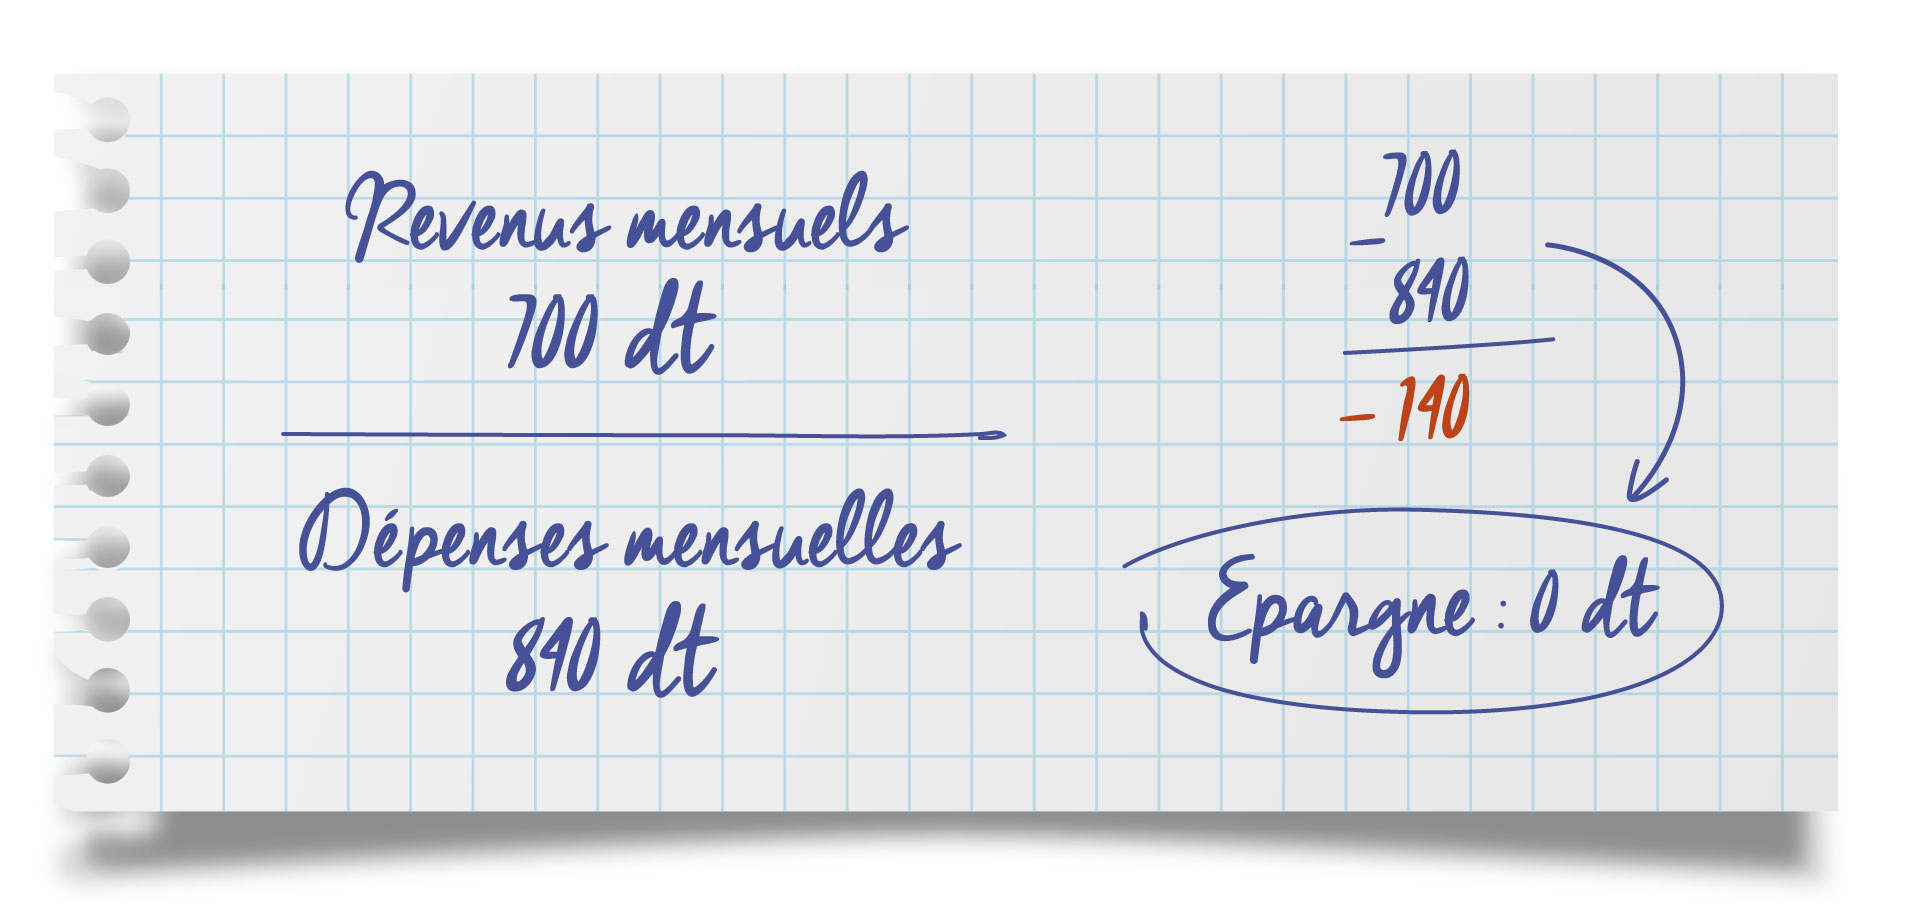 Revenus mensuels
700 dt
Dépenses mensuelles
840 dt
700
-
840
- 140
Epargne : 0 dt